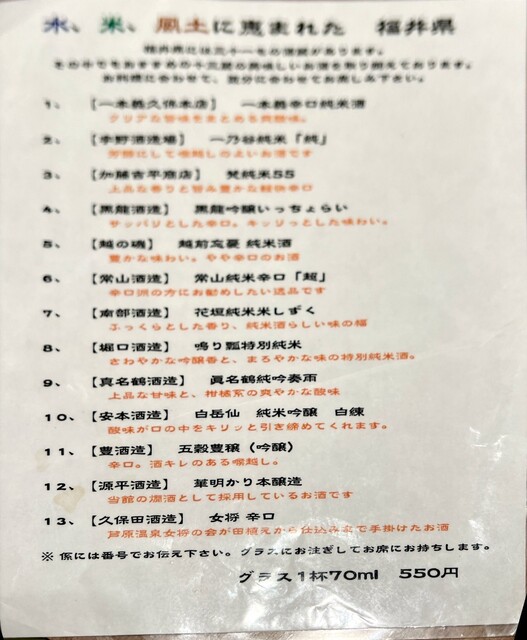 水、米、風土に恵まれた 福井県
福井県には三十一もの酒蔵があります。
その中でもおすすめの十三蔵の美味しいお酒を取り揃えております。
お料理に合わせて、気分に合わせてお楽しみ下さい。
1、【一本義久保本店】 一本義辛口純米酒
クリアな旨味をまとめる爽酸味。
2、【宇野酒造場】 一乃谷純米「純」
芳醇にして喉越しのよいお酒です
3、【加藤吉平商店】 梵純米55
上品な香りと旨み豊かな軽快辛口
4、【黒龍酒造】 黒龍吟醸いっちょらい
サッパリとした辛口。キッリっとした味わい。
5、【越の磯】 越前忘憂 純米酒
豊かな味わい。やや辛口のお酒
6、【常山酒造】 常山純米辛口「超」
辛口派の方にお勧めしたい逸品です
7、【南部酒造】 花垣純米米しずく
ふっくらとした香り、純米酒らしい味の幅
8、【堀口酒造】 鳴り瓢特別純米
さわやかな吟醸香と、まろやかな味の特別純米酒。
9、【真名鶴酒造】 眞名鶴純吟奏雨
上品な甘味と、柑橘系の爽やかな酸味
10、【安本酒造】 白岳仙 純米吟醸 白練
酸味が口の中をキリッと引き締めてくれます。
11、【豊酒造】 五穀豊穣（吟醸）
辛口。酒キレのある喉越し。
12、【源平酒造】 華明かり本醸造
当館の燗酒として採用しているお酒です
13、【久保田酒造】 女将 辛口
芦原温泉女将の会が田植えから仕込みまで手掛けたお酒
※ 係には番号でお伝え下さい。グラスにお注ぎしてお席にお持ちします。
グラス1杯70ml 550円